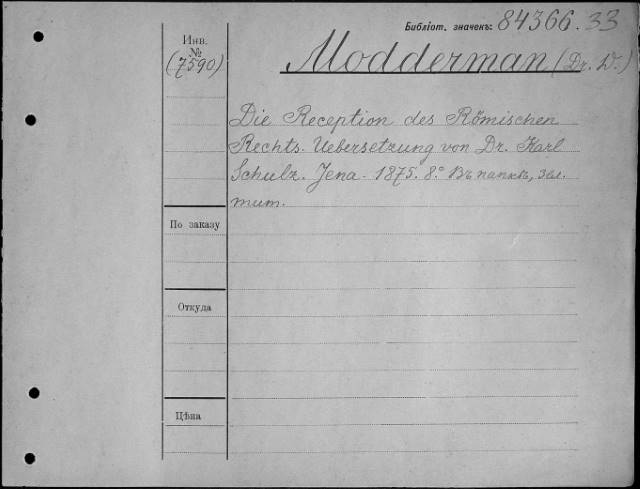 Бібліот. значекъ: 84366.33
Инв.
№
(7590)
Modderman (Dr. W.)
Die Reception des Römischen
Rechts. Uebersetzung von Dr. Karl
Schulz. Jena. 1875. 8.° Въ папкѣ,
mum.
По заказу
Откуда
Цѣна